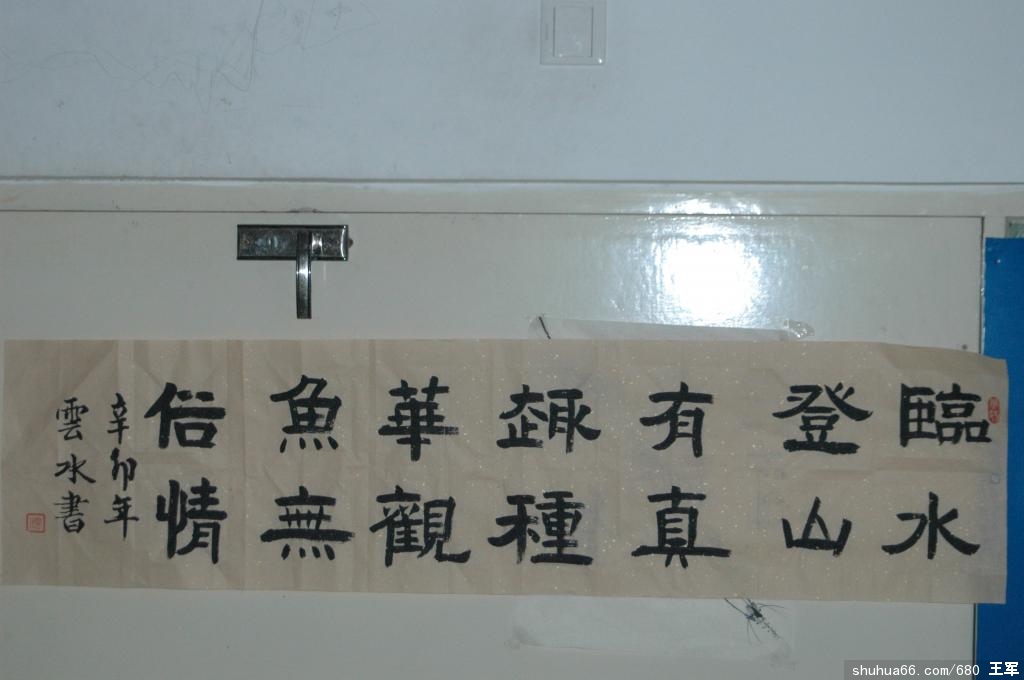 臨水
登山
有真
趣種
華觀
魚無
俗情
辛卯年
雲水書
shuhua66.com/680 王军